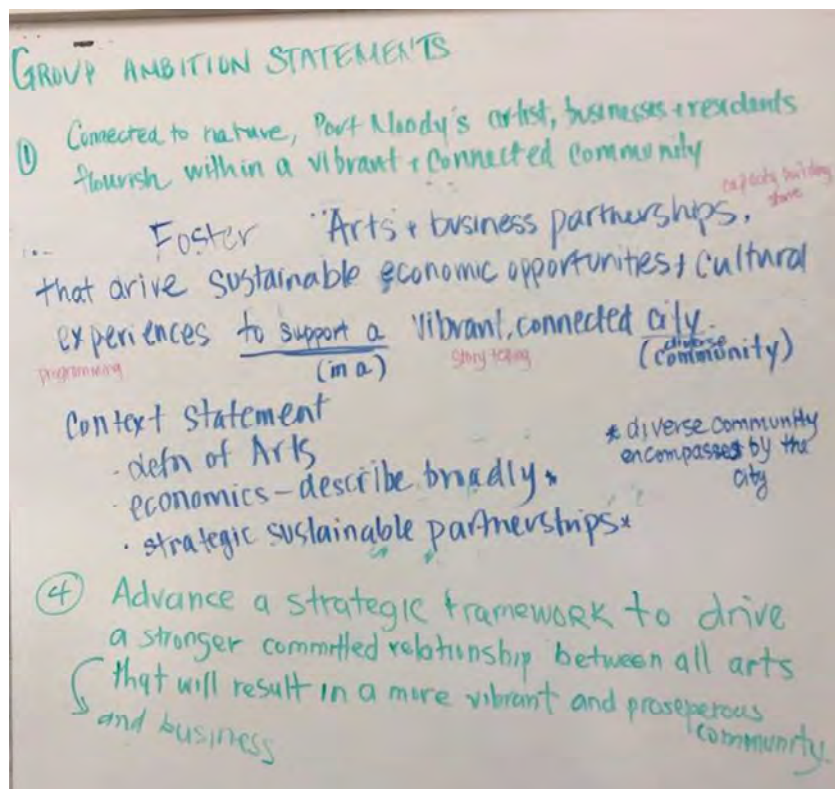 GROUP AMBITION STATEMENTS
① Connected to nature, Port Moody's artist, businesses + residents
flourish within a vibrant + connected community
capacity building
... Foster "Arts + business partnerships,
that drive sustainable economic opportunities + cultural
experiences to support a vibrant, connected city.
programming (in a) story telling (diverse community)
Context statement
· defn of Arts
· economics - describe broadly *
· strategic sustainable partnerships *
* diverse community
encompasses by the
city
④ Advance a strategic framework to drive
a stronger committed relationship between all arts
that will result in a more vibrant and proseperous
community
and business